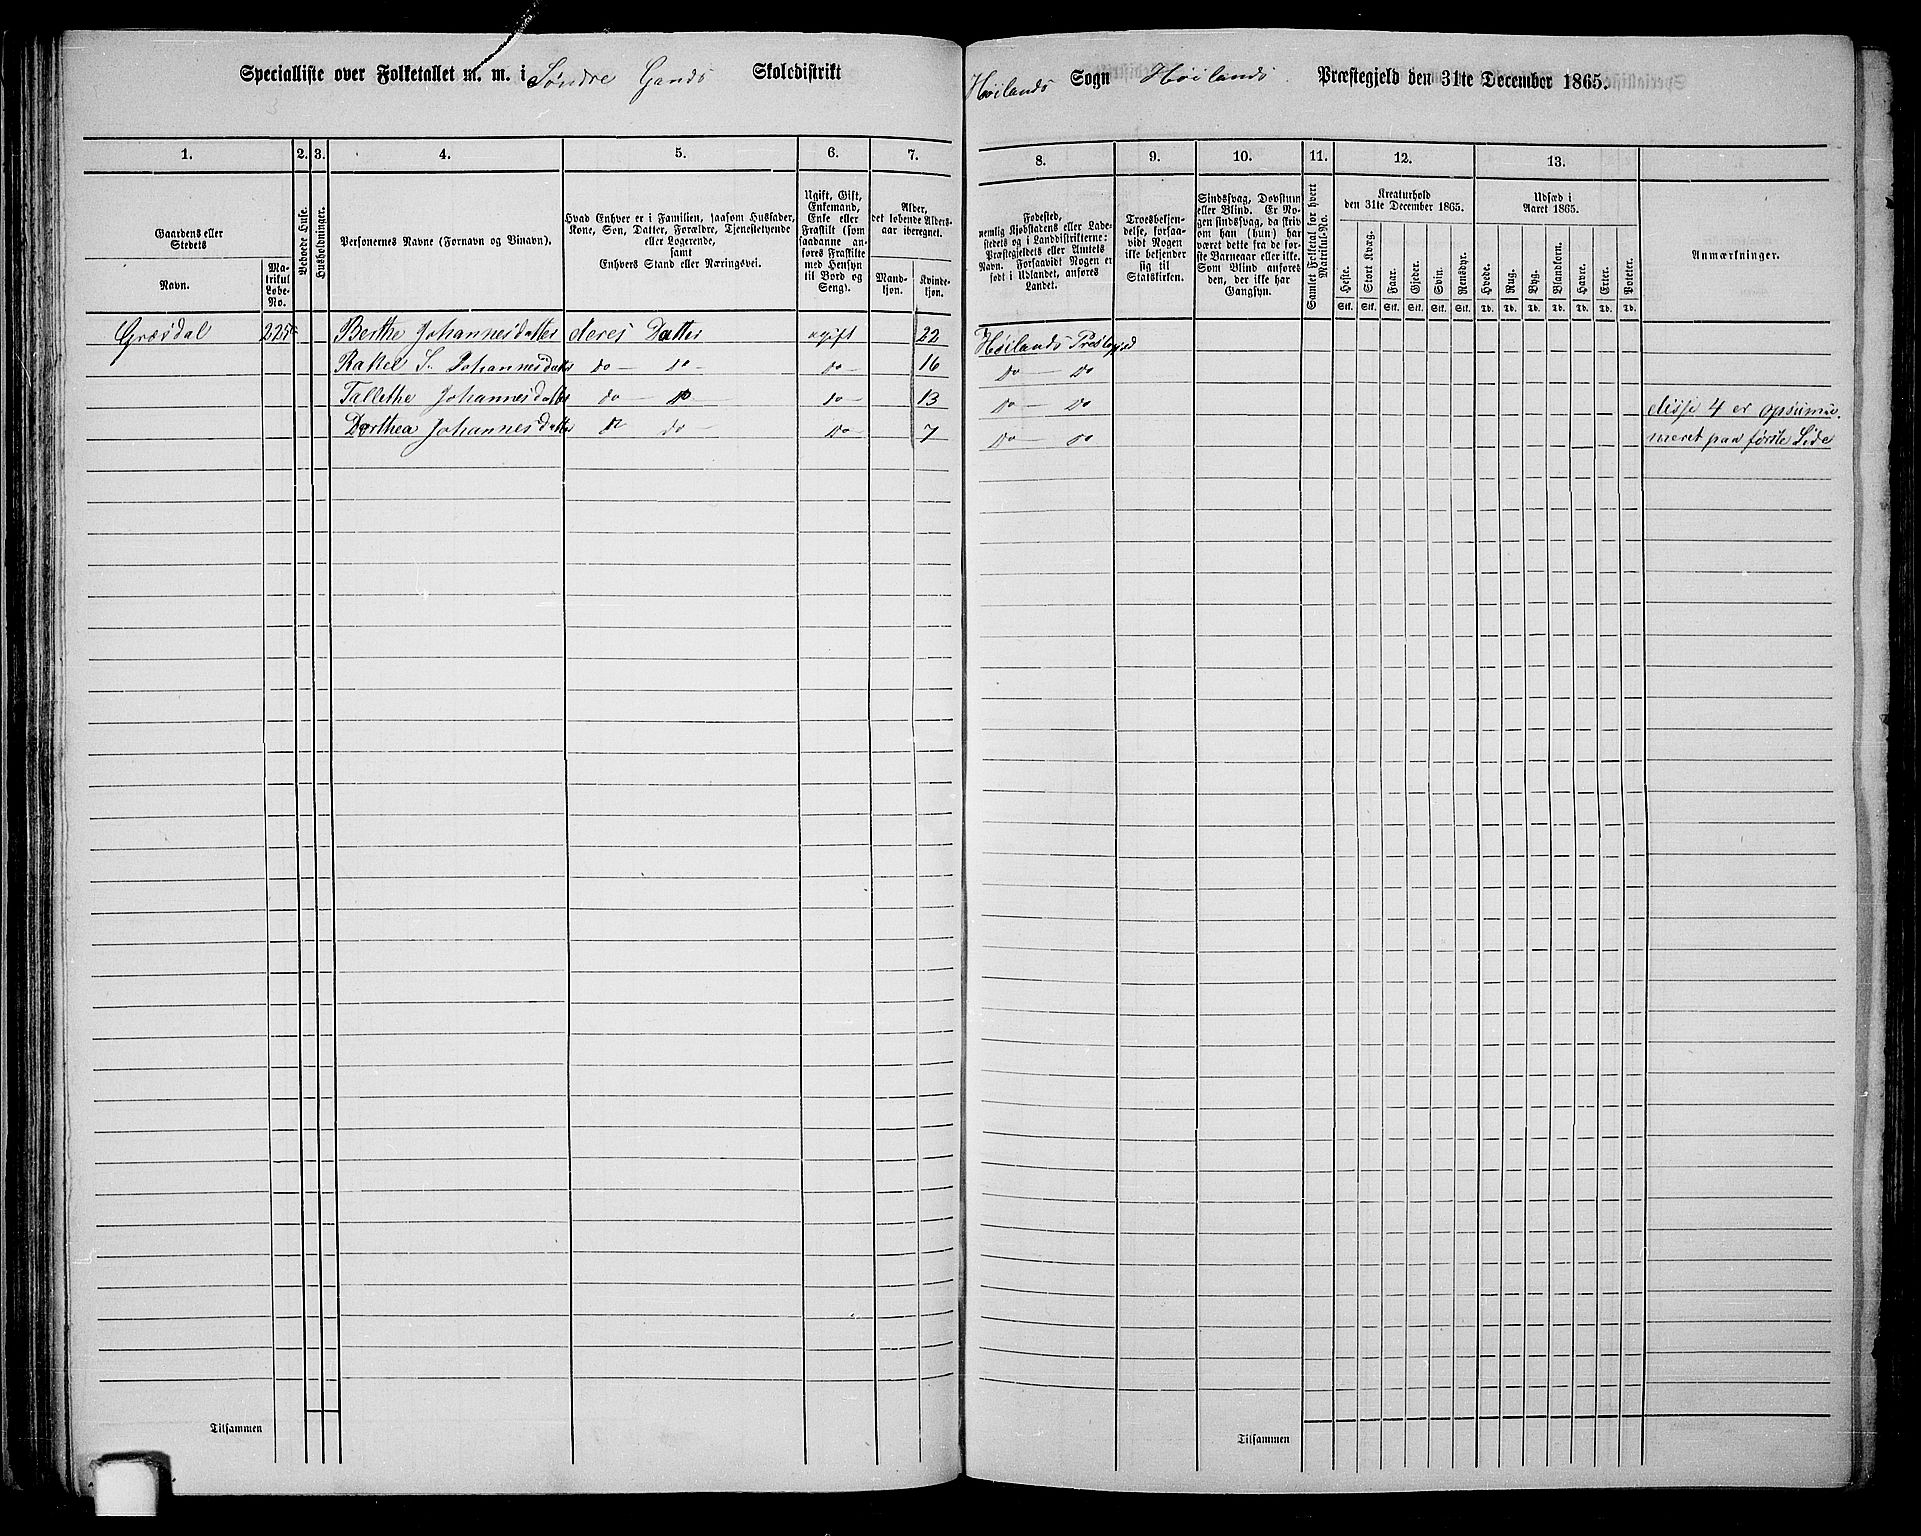 Specialliste over Folketallet m. m. i Søndre Gands Skoledistrikt Høilands Sogn Høilands Præstegjeld den 31te December 1865.
1. 2. 3. 4. 5. 6. 7. 8. 9. 10. 11. 12. 13.
Gaardens eller
Stedets
Navn.
Ma-
trikul
Løbe-
No.
Beboede Huse.
Husholdninger.
Personernes Navne (Fornavn og Tilnavn).
Hvad Enhver er i Familien, saasom Husfader,
Kone, Søn, Datter, Forældre, Tjenestetyende
eller Logerende,
samt
Enhvers Stand eller Næringsvei.
Ugift, Gift,
Enkemand,
Enke eller
Fraskilt (som
saadanne an-
føres Fraskilte
med Hensyn
til Bord og
Seng).
Alder,
det løbende Alders-
aar iberegnet.
Mand-
kjøn.
Kvinde-
kjøn.
Fødested,
nemlig Kjøbstadens eller Lade-
stedets og i Landdistrikterne:
Præstegjeldets eller Amtets
Navn. Forsaavidt Nogen er
født i Udlandet, anføres
Landet.
Troesbekjen-
delse, forsaa-
vidt Nogen
ikke bekjender
sig til
Statskirken.
Sindssvag, Døvstum
eller Blind. Er No-
gen sindssvag, da skriv
om han (hun) har
været dette fra de før-
ste Barneaar eller ikke.
Som Blind anføres
den, der ikke har
Gangsyn.
Samlet Folketal for hvert
Matrikul-No.
Kreaturhold
den 31te December 1865.
Heste. Stort Kvæg. Faar. Gjeder. Svin. Rensdyr.
Stk. Stk. Stk. Stk. Stk. Stk.
Udsæd i
Aaret 1865.
Hvede. Rug. Byg. Blandkorn. Havre. Erter. Poteter.
Td. Td. Td. Td. Td. Td. Td.
Anmærkninger.
Græsdal 225 Berthe Johannesdatter deres Datter ugift 22 Høilands Prestegjed
Rakel S. Johannesdatter do do do 16 do do
Tallethe Johannesdatter do do do 13 do do disse 4 er opsumme-
Dorthea Johannesdatter do do do 7 do do meret paa første Side
Tilsammen
Tilsammen